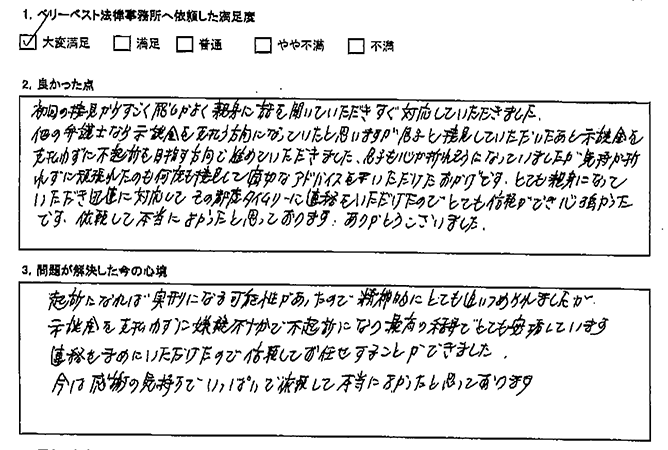 1. ベリーベスト法律事務所へ依頼した満足度
☑ 大変満足 □ 満足 □ 普通 □ やや不満 □ 不満
2. 良かった点
初回の接見からすごく感じがよく親身に話を聞いていただきすぐ対応していただきました。
他の弁護士なら示談金を支払う方向になっていたと思いますが息子と接見していただいたあと示談金を
支払わずに不起訴を目指す方向で進めていただきました。息子も心が折れそうになっていましたが気持が折
れずに頑張れたのも何度も接見して適切なアドバイスを頂いただけたおかげです。とても親身になって
いただき迅速に対応してその都度タイムリーに連絡をいただけたのでとても信頼ができ心強かった
です。依頼して本当によかったと思っております。ありがとうございました。
3. 問題が解決した今の心境
起訴になれば実刑になる可能性があったので精神的にとても追いつめられましたが
示談金を支払わずに嫌疑不十分で不起訴になり最高の結果でとても安堵しています
連絡をまめにいただけたので信頼してお任せすることができました。
今は感謝の気持ちでいっぱいで依頼して本当によかったと思っております